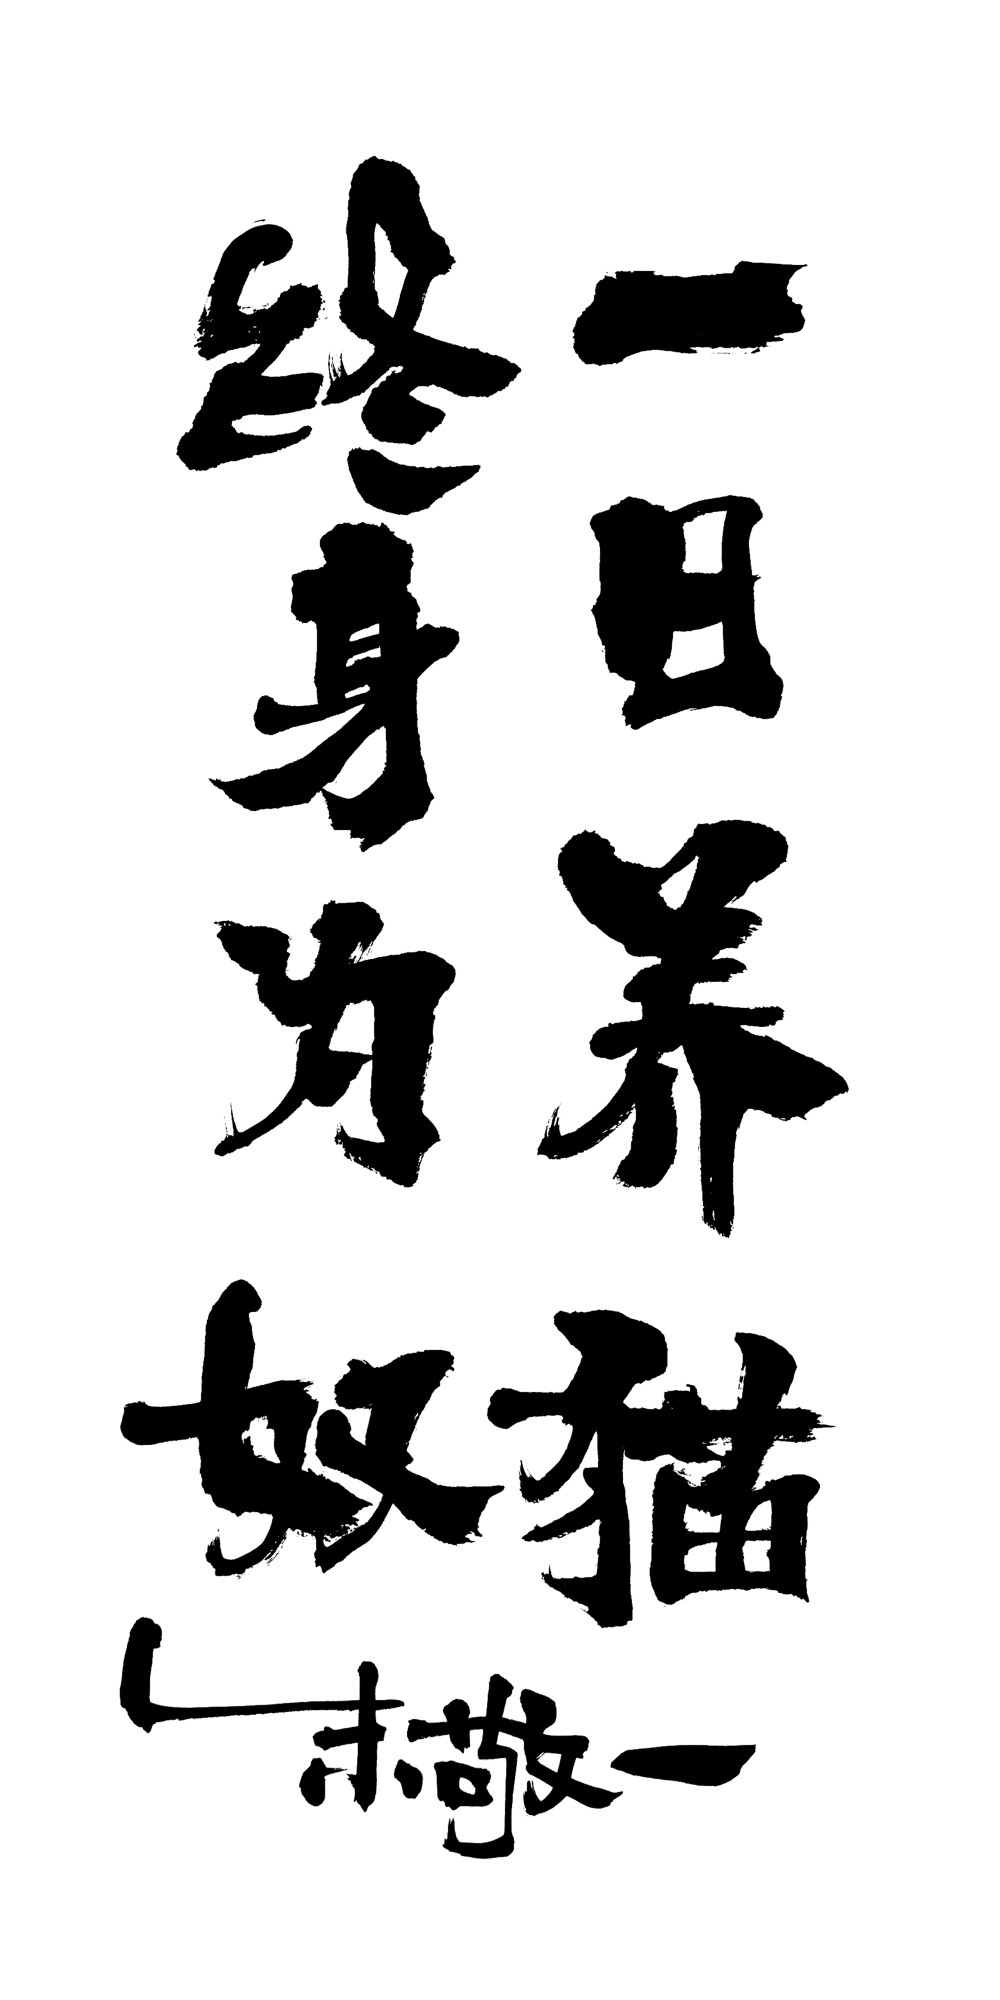 一日养猫
终身为奴
朱敬一